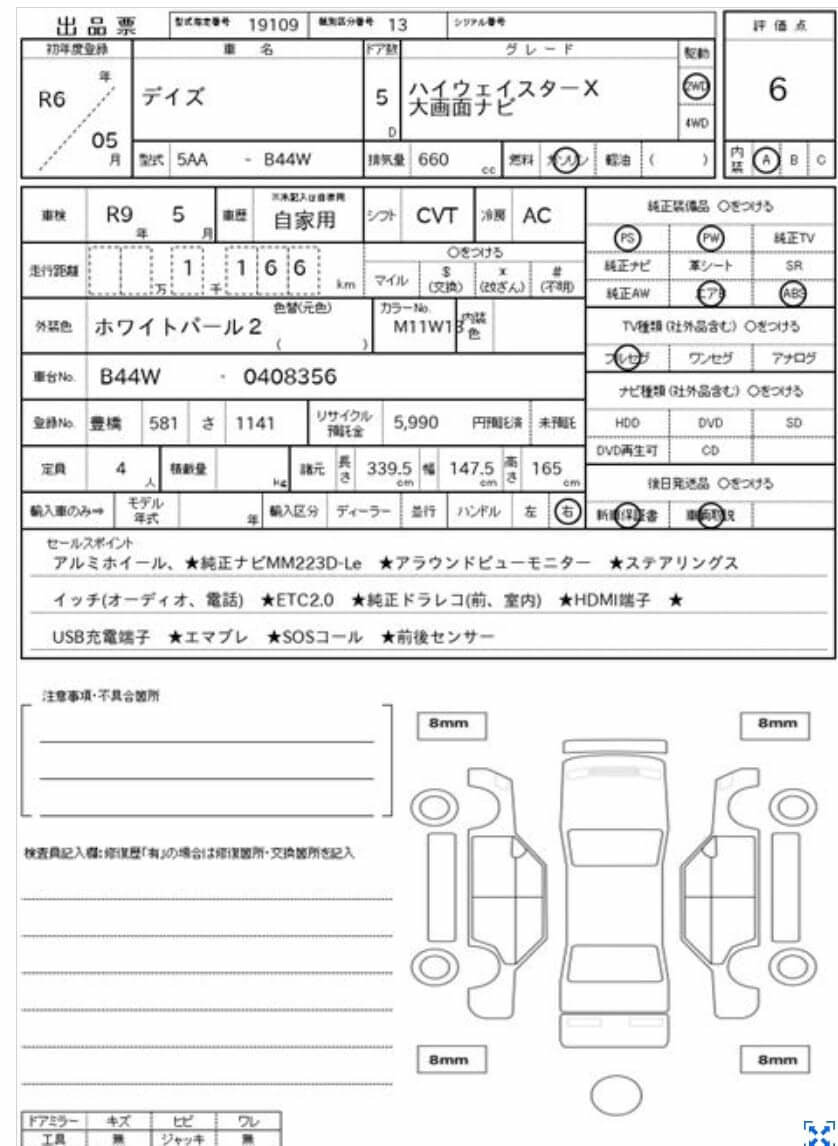 出品票 型式指定番号 19109 類別区分番号 13 シリアル番号
評価点
初年度登録 車名 ドア数 グレード 駆動
R6 年 デイズ 5 D ハイウェイスターX 2WD 6
大画面ナビ
05 月 4WD
型式 5AA - B44W 排気量 660 cc 燃料 ガソリン 軽油 ( ) 内装 A B C
車検 R9 年 5 月 車歴 ※未記入は自家用 自家用 シフト CVT 冷房 AC
純正装備品 ○をつける
PS PW 純正TV
走行距離 万 1 千 1 6 6 km ○をつける
マイル $(交換) x(改ざん) #(不明)
純正ナビ 革シート SR
純正AW エアB ABS
外装色 ホワイトパール2 色替(元色) ( ) カラーNo. M11W13 内装色
TV種類(社外品含む) ○をつける
フルセグ ワンセグ アナログ
車台No. B44W - 0408356
ナビ種類(社外品含む) ○をつける
登録No. 豊橋 581 さ 1141 リサイクル預託金 5,990 円預託済 未預託
HDD DVD SD
DVD再生可 CD
定員 4 人 積載量 kg 諸元 長さ 339.5 cm 幅 147.5 cm 高さ 165 cm
後日発送品 ○をつける
輸入車のみ⇒ モデル年式 年 輸入区分 ディーラー 並行 ハンドル 左 右
新車保証書 車輌取説
セールスポイント
アルミホイール、★純正ナビMM223D-Le ★アラウンドビューモニター ★ステアリングス
イッチ(オーディオ、電話) ★ETC2.0 ★純正ドラレコ(前、室内) ★HDMI端子 ★
USB充電端子 ★エマブレ ★SOSコール ★前後センサー
注意事項・不具合箇所
8mm 8mm
検査員記入欄:修復歴「有」の場合は修復箇所・交換箇所を記入
8mm 8mm
ドアミラー キズ ヒビ ワレ
工具 無 ジャッキ 無